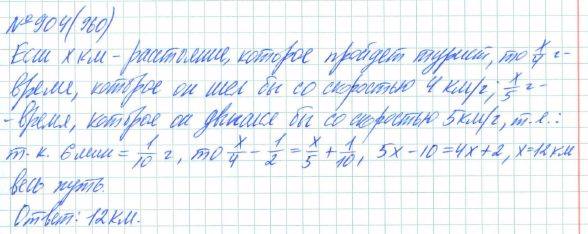 №904(960)
Если x км - расстояние, которое пройдет турист, то x/4 г -
время, которое он шел бы со скоростью 4 км/г; x/5 г -
- время, которое он двигался бы со скоростью 5 км/г, т.е.:
т.к. 6 мин = 1/10 г, то x/4 - 1/2 = x/5 + 1/10, 5x - 10 = 4x + 2, x = 12 км
весь путь.
Ответ: 12 км.